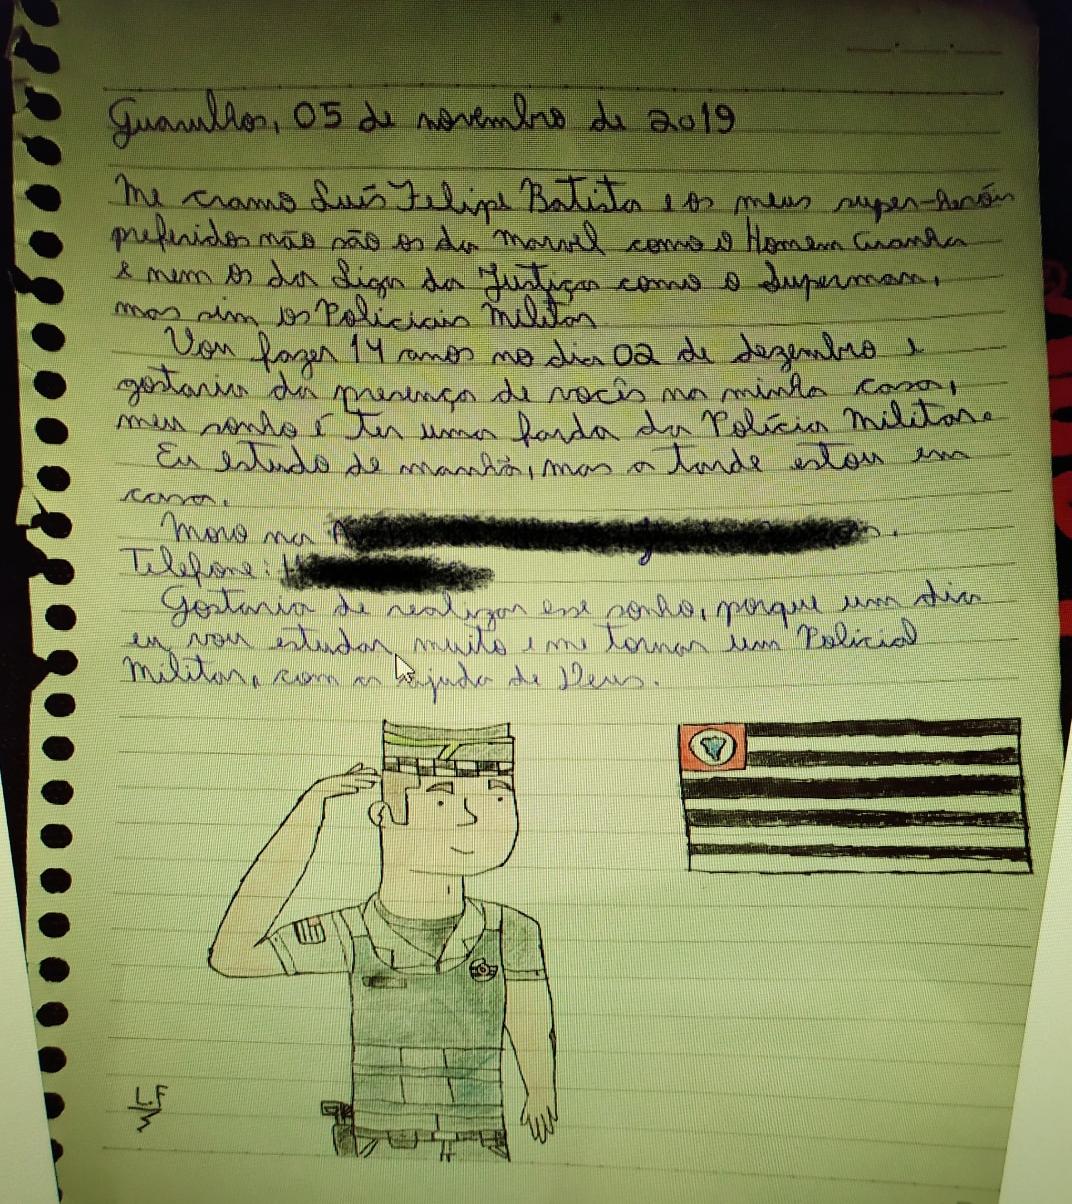 Guarulhos, 05 de novembro de 2019
Me cramo Luís Felipe Batista e os meus super-heróis
preferidos não são os da Marvel como o Homem Aranha
e nem os da Liga da Justiça como o Superman,
mas sim os Policiais Militar
Vou fazer 14 anos no dia 02 de dezembro e
gostaria da presença de vocês na minha casa,
meu sonho é ter uma farda da Polícia Militar.
Eu estudo de manhã, mas a tarde estou em
casa.
Moro na
Telefone:
Gostaria de realizar esse sonho, porque um dia
eu vou estudar muito e me tornar um Policial
Militar, com a ajuda de Deus.
L.F